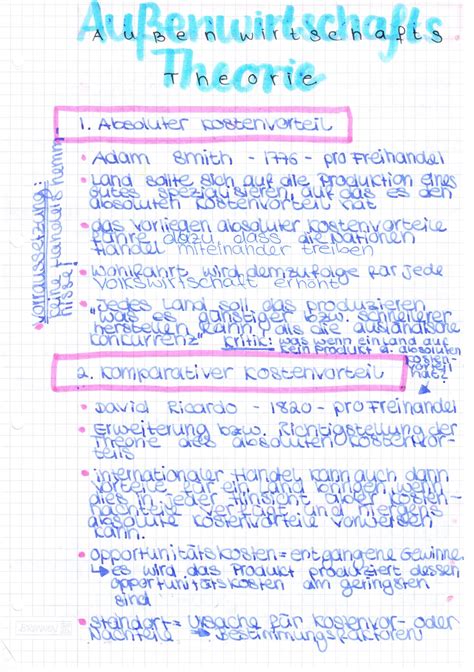 Außenwirtschafts
Theorie
1. Absoluter Kostenvorteil
• Adam Smith - 1776 - pro Freihandel
• Land sollte sich auf die Produktion eines
Gutes spezialisieren, auf das es den
absoluten Kostenvorteil hat
• das Vorliegen absoluter Kostenvorteile
führe dazu, dass die Nationen
Handel miteinander treiben
• Wohlfahrt wird demzufolge für jede
Volkswirtschaft erhöht
• Jedes Land soll das produzieren,
"was es günstiger bzw. schneller
herstellen kann, als die ausländische
Konkurrenz"
Kritik: was wenn ein Land auf
kein Produkt d. absoluten
Kosten-
vorteil
hat?
• Vorraussetzung:
keine Handelshemm-
nisse!
2. Komparativer Kostenvorteil
• David Ricardo - 1820 - pro Freihandel
• Erweiterung bzw. Richtigstellung der
Theorie des absoluten Kostenvor-
teils
• internationaler Handel kann auch dann
Vorteile für ein Land bringen, wenn
dies in jeder Hinsicht über Kosten-
nachteile verfügt und nirgends
absolute Kostenvorteile vorweisen
kann.
• Opportunitätskosten = entgangene Gewinne
↳ es wird das Produkt produziert dessen
Opportunitätskosten am geringsten
sind
• Standort = Ursache für Kostenvor- oder
Nachteile → Bestimmungsfaktoren